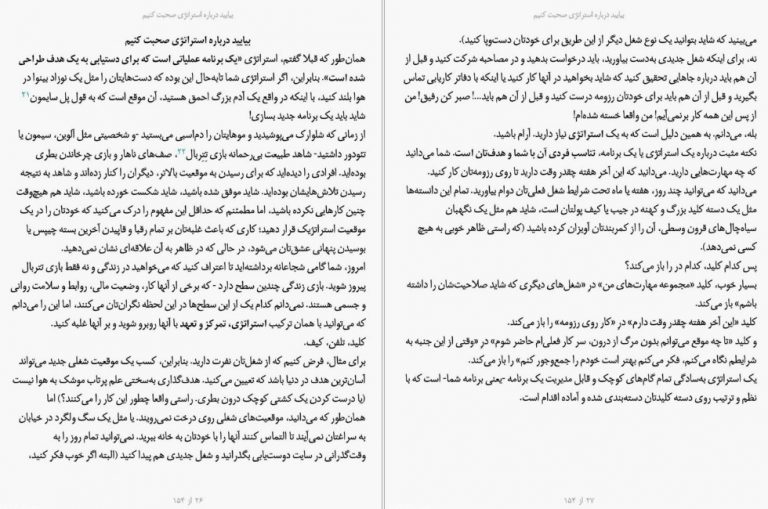 بیایید درباره استراتژی صحبت کنیم
بیایید درباره استراتژی صحبت کنیم
همان‌طور که قبلا گفتم، استراتژی «یک برنامه عملیاتی است که برای دستیابی به یک هدف طراحی
شده است». بنابراین، اگر استراتژی شما تابه‌حال این بوده که دست‌هایتان را مثل یک نوزاد بینوا در
هوا بلند کنید، با اینکه در واقع یک آدم بزرگ احمق هستید، آن موقع است که به قول پل سایمون۲۱
شاید باید یک برنامه جدید بسازی!
از زمانی که شلوارک می‌پوشیدید و موهایتان را دم‌اسبی می‌بستید -و شخصیتی مثل آلوین، سیمون یا
تئودور داشتید- شاهد طبیعت بی‌رحمانه بازی تِتِربال۲۲، صف‌های ناهار و بازی چرخاندن بطری
بوده‌اید. افرادی را دیده‌اید که برای رسیدن به موقعیت بالاتر، دیگران را کنار زده‌اند و شاهد به نتیجه
رسیدن تلاش‌هایشان بوده‌اید. شاید موفق شده باشید، شاید شکست خورده باشید، شاید هم هیچ‌وقت
چنین کارهایی نکرده باشید، اما مطمئنم که حداقل این مفهوم را درک می‌کنید که خودتان را در یک
موقعیت استراتژیک قرار دهید؛ کاری که باعث غلبه‌تان بر تمام رقبا و قاپیدن آخرین بسته چیپس یا
بوسیدن پنهانی عشق‌تان می‌شود، در حالی که در ظاهر به آن علاقه‌ای نشان نمی‌دهید.
امروز، شما گامی شجاعانه برداشته‌اید تا اعتراف کنید که می‌خواهید در زندگی و نه فقط بازی تتربال
پیروز شوید. بازی زندگی چندین سطح دارد - که برخی از آنها کار، وضعیت مالی، روابط و سلامت روانی
و جسمی هستند. نمی‌دانم کدام یک از این سطح‌ها در این لحظه نگران‌تان می‌کنند، اما این را می‌دانم
که می‌توانید با همان ترکیب استراتژی، تمرکز و تعهد با آنها روبرو شوید و بر آنها غلبه کنید.
کلید، تلفن، کیف.
برای مثال، فرض کنیم که از شغل‌تان نفرت دارید. بنابراین، کسب یک موقعیت شغلی جدید می‌تواند
آسان‌ترین هدف در دنیا باشد که تعیین می‌کنید. هدف‌گذاری به‌سختی علم پرتاب موشک به هوا نیست
(یا درست کردن یک کشتی کوچک درون بطری. راستی واقعا چطور این کار را می‌کنند؟) اما
همان‌طور که می‌دانید، موقعیت‌های شغلی روی درخت نمی‌رویند. یا مثل یک سگ ولگرد در خیابان
به سراغتان نمی‌آیند تا التماس کنند آنها را با خودتان به خانه ببرید. نمی‌توانید تمام روز را به
وقت‌گذرانی در سایت دوست‌یابی بگذرانید و شغل جدیدی هم پیدا کنید (البته اگر خوب فکر کنید،
۲۶ از ۱۵۴
بیایید درباره استراتژی صحبت کنیم
می‌بینید که شاید بتوانید یک نوع شغل دیگر از این طریق برای خودتان دست‌وپا کنید).
نه، برای اینکه شغل جدیدی به‌دست بیاورید، باید درخواست بدهید و در مصاحبه شرکت کنید و قبل از
آن هم باید درباره جاهایی تحقیق کنید که شاید بخواهید در آنها کار کنید یا اینکه با دفاتر کاریابی تماس
بگیرید و قبل از آن هم باید برای خودتان رزومه درست کنید و قبل از آن هم باید...! صبر کن رفیق! من
از پس این همه کار برنمی‌آیم! من واقعا خسته شده‌ام!
بله، می‌دانم، به همین دلیل است که به یک استراتژی نیاز دارید. آرام باشید.
نکته مثبت درباره یک استراتژی یا یک برنامه، تناسب فردی آن با شما و هدف‌تان است. شما می‌دانید
که چه مهارت‌هایی دارید. می‌دانید که این آخر هفته چقدر وقت دارید تا روی رزومه‌تان کار کنید.
می‌دانید که می‌توانید چند روز، هفته یا ماه تحت شرایط شغل فعلی‌تان دوام بیاورید. تمام این دانسته‌ها
مثل یک دسته کلید بزرگ و کهنه در جیب یا کیف پولتان است، شاید هم مثل یک نگهبان
سیاه‌چال‌های قرون وسطی، آن را از کمربندتان آویزان کرده باشید (که راستی ظاهر خوبی به هیچ
کسی نمی‌دهد).
پس کدام کلید، کدام در را باز می‌کند؟
بسیار خوب، کلید «مجموعه مهارت‌های من» در «شغل‌های دیگری که شاید صلاحیت‌شان را داشته
باشم» باز می‌کند.
کلید «این آخر هفته چقدر وقت دارم» در «کار روی رزومه» را باز می‌کند.
و کلید «تا چه موقع می‌توانم بدون مرگ از درون، سر کار فعلی‌ام حاضر شوم» در «وقتی از این جنبه به
شرایطم نگاه می‌کنم، فکر می‌کنم بهتر است خودم را جمع‌وجور کنم» را باز می‌کند.
یک استراتژی به‌سادگی تمام گام‌های کوچک و قابل مدیریت یک برنامه -یعنی برنامه شما- است که با
نظم و ترتیب روی دسته کلیدتان دسته‌بندی شده و آماده اقدام است.
۲۷ از ۱۵۴